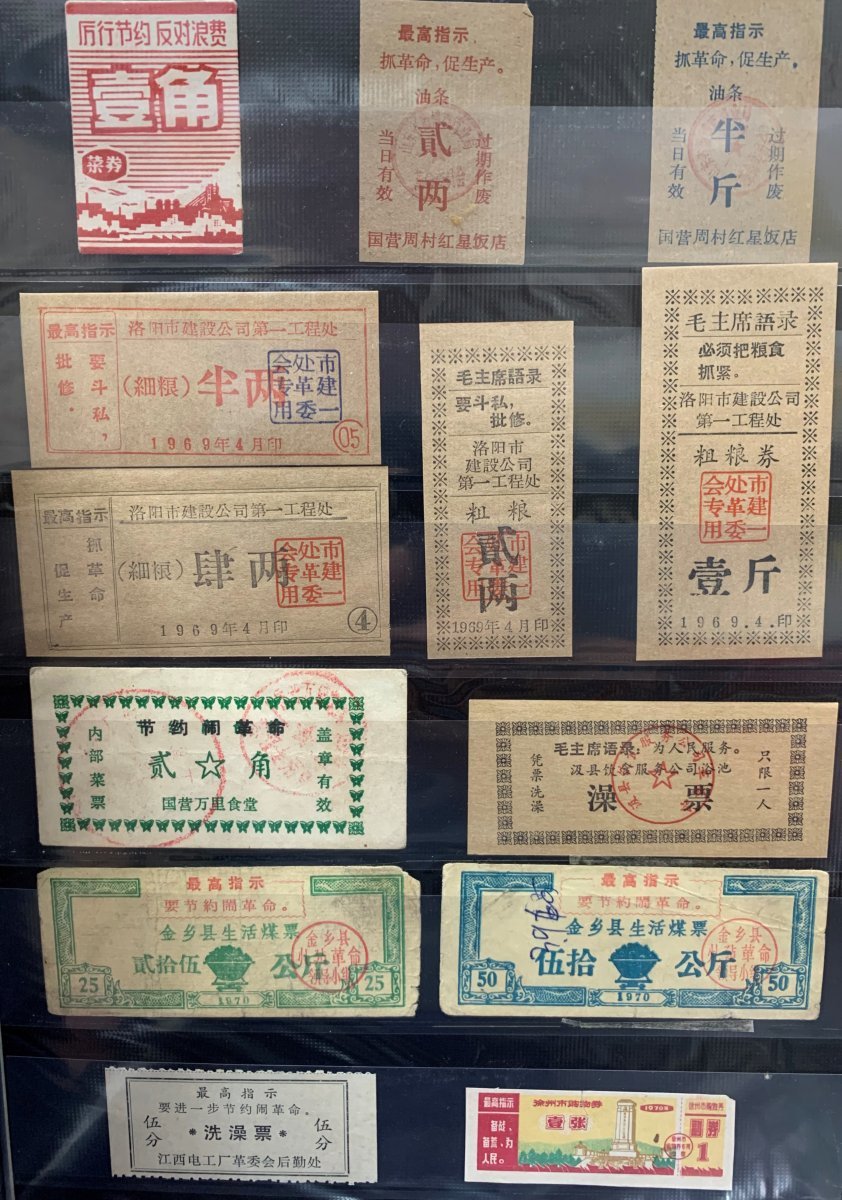 厉行节约 反对浪费
壹角
菜券
最高指示
抓革命，促生产。
油条
当日有效
贰两
过期作废
国营周村红星饭店
最高指示
抓革命，促生产。
油条
当日有效
半斤
过期作废
国营周村红星饭店
最高指示
要斗私，
批修．
洛阳市建設公司第一工程处
（細粮）半两
市建一
处革委
会专用
1969年4月印
05
毛主席語录
要斗私，
批修。
洛阳市
建設公司
第一工程处
粗粮
贰两
市建一
处革委
会专用
1969年4月印
毛主席語录
必须把粮食
抓紧。
洛阳市建設公司
第一工程处
粗粮券
市建一
处革委
会专用
壹斤
1969.4.印
最高指示
抓革命
促生产
洛阳市建設公司第一工程处
（細粮）肆两
市建一
处革委
会专用
1969年4月印
4
节约闹革命
内部菜票
贰☆角
盖章有效
国营万里食堂
毛主席语录：为人民服务。
汲县饮食服务公司浴池
凭票洗澡
澡票
只限一人
最高指示
要节約鬧革命。
金乡县生活煤票
贰拾伍 公斤
金乡县
25
1970
25
最高指示
要节約鬧革命。
金乡县生活煤票
伍拾 公斤
金乡县
50
1970
50
最高指示
要进一步节约闹革命。
伍分
*洗澡票*
伍分
江西电工厂革委会后勤处
最高指示
备战、
备荒、为
人民。
1970年
壹张
1